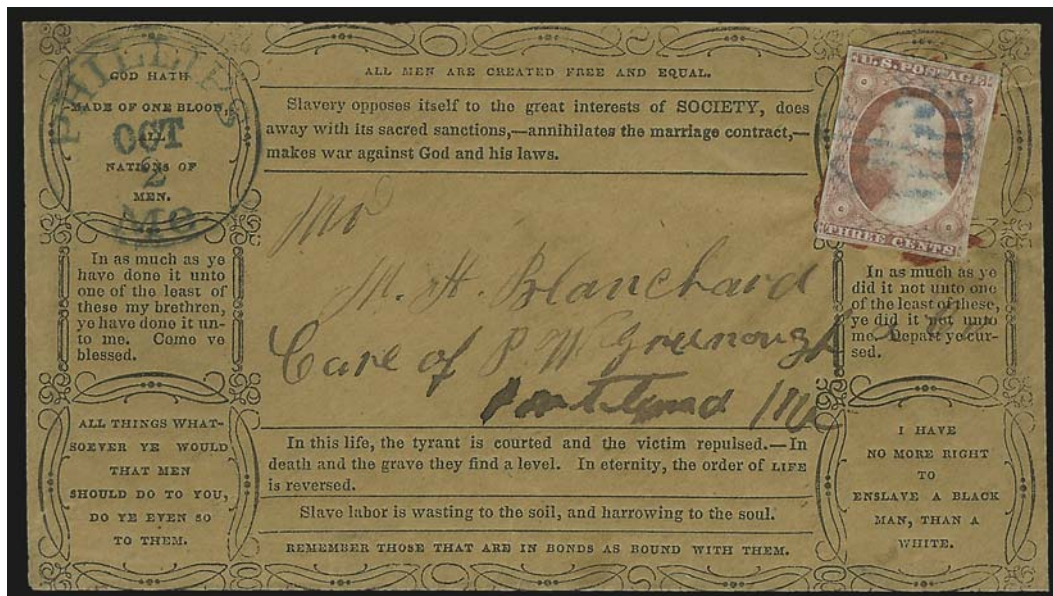 GOD HATH
MADE OF ONE BLOOD,
ALL
NATIONS OF
MEN.
PHILLIPS
OCT
2
ME.
ALL MEN ARE CREATED FREE AND EQUAL.
Slavery opposes itself to the great interests of SOCIETY, does
away with its sacred sanctions,—annihilates the marriage contract,—
makes war against God and his laws.
U.S. POSTAGE
THREE CENTS
In as much as ye
have done it unto
one of the least of
these my brethren,
ye have done it un-
to me. Come ye
blessed.
M. H. Blanchard
Care of P. W. Greenough
Portland Me
In as much as ye
did it not unto one
of the least of these,
ye did it not unto
me. Depart ye cur-
sed.
ALL THINGS WHAT-
SOEVER YE WOULD
THAT MEN
SHOULD DO TO YOU,
DO YE EVEN SO
TO THEM.
In this life, the tyrant is courted and the victim repulsed.—In
death and the grave they find a level. In eternity, the order of LIFE
is reversed.
Slave labor is wasting to the soil, and harrowing to the soul.
REMEMBER THOSE THAT ARE IN BONDS AS BOUND WITH THEM.
I HAVE
NO MORE RIGHT
TO
ENSLAVE A BLACK
MAN, THAN A
WHITE.